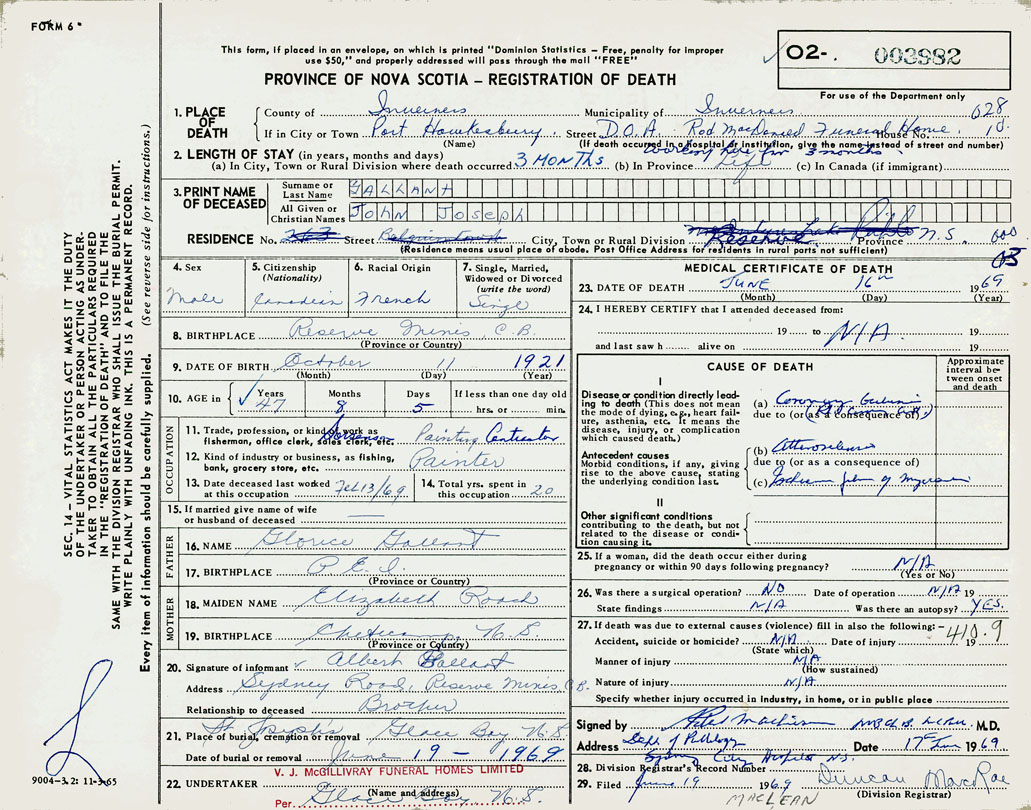 FORM 6
This form, if placed in an envelope, on which is printed "Dominion Statistics – Free, penalty for improper
use $50," and properly addressed will pass through the mail "FREE"
O2-. 003982
PROVINCE OF NOVA SCOTIA – REGISTRATION OF DEATH
For use of the Department only
1. PLACE OF DEATH
County of Inverness Municipality of Inverness 028
If in City or Town Port Hawkesbury Street D.O.A. Rod MacDonald Funeral Home House No. 10
(Name) (If death occurred in a Hospital or Institution, give the name instead of street and number)
2. LENGTH OF STAY (in years, months and days) working here for 3 months
(a) In City, Town or Rural Division where death occurred 3 MONTHS (b) In Province Life (c) In Canada (if immigrant)
3. PRINT NAME OF DECEASED
Surname or Last Name GALLANT
All Given or Christian Names John Joseph
RESIDENCE No. Street City, Town or Rural Division Reserve Province N.S. 600
(Residence means usual place of abode. Post Office Address for residents in rural parts not sufficient)
03
4. Sex Male
5. Citizenship (Nationality) Canadian
6. Racial Origin French
7. Single, Married, Widowed or Divorced (write the word) Single
8. BIRTHPLACE Reserve Mines, C.B.
(Province or Country)
9. DATE OF BIRTH October 11 1921
(Month) (Day) (Year)
10. AGE in Years 47 Months 8 Days 5 If less than one day old hrs. or min.
OCCUPATION
11. Trade, profession, or kind of work as fisherman, office clerk, sales clerk, etc. Painting Contractor
12. Kind of industry or business, as fishing, bank, grocery store, etc. Painter
13. Date deceased last worked at this occupation Feb 13/69
14. Total yrs. spent in this occupation 20
15. If married give name of wife or husband of deceased —
FATHER
16. NAME Gallant
17. BIRTHPLACE P.E.I.
(Province or Country)
MOTHER
18. MAIDEN NAME Elizabeth Roach
19. BIRTHPLACE Cheticamp, N.S.
(Province or Country)
20. Signature of informant Albert Gallant
Address Sydney Road, Reserve Mines C.B.
Relationship to deceased Brother
21. Place of burial, cremation or removal St. Joseph's Glace Bay N.S.
Date of burial or removal June 19 – 1969
V. J. McGILLIVRAY FUNERAL HOMES LIMITED
22. UNDERTAKER (Name and address)
Per Glace Bay N.S.
MEDICAL CERTIFICATE OF DEATH
23. DATE OF DEATH JUNE 16th 1969
(Month) (Day) (Year)
24. I HEREBY CERTIFY that I attended deceased from:
19 to N/A 19
and last saw h alive on 19
CAUSE OF DEATH
Approximate interval between onset and death
I
Disease or condition directly leading to death (This does not mean the mode of dying, e.g., heart failure, asthenia, etc. It means the disease, injury, or complication which caused death.)
(a) Coronary
due to (or as a consequence of)
Antecedent causes
Morbid conditions, if any, giving rise to the above cause, stating the underlying condition last.
(b)
due to (or as a consequence of)
(c)
II
Other significant conditions contributing to the death, but not related to the disease or condition causing it.
25. If a woman, did the death occur either during pregnancy or within 90 days following pregnancy? N/A
(Yes or No)
26. Was there a surgical operation? NO Date of operation N/A 19
State findings N/A Was there an autopsy? YES.
27. If death was due to external causes (violence) fill in also the following:– 410.9
Accident, suicide or homicide? N/A Date of injury 19
(State which)
Manner of injury N/A
(How sustained)
Nature of injury N/A
Specify whether injury occurred in Industry, in home, or in public place
Signed by M.D.
Address Dept of Pathology Date 17th June 1969
Sydney City Hospital N.S.
28. Division Registrar's Record Number
29. Filed June 19 1969 Duncan MacRae
MACLEAN (Division Registrar)
SEC. 14 – VITAL STATISTICS ACT MAKES IT THE DUTY
OF THE UNDERTAKER OR PERSON ACTING AS UNDER-
TAKER TO OBTAIN ALL THE PARTICULARS REQUIRED
IN THE "REGISTRATION OF DEATH" AND TO FILE THE
SAME WITH THE DIVISION REGISTRAR WHO SHALL ISSUE THE BURIAL PERMIT.
WRITE PLAINLY WITH UNFADING INK. THIS IS A PERMANENT RECORD.
Every item of information should be carefully supplied. (See reverse side for instructions.)
9004–3.2: 11-3-65